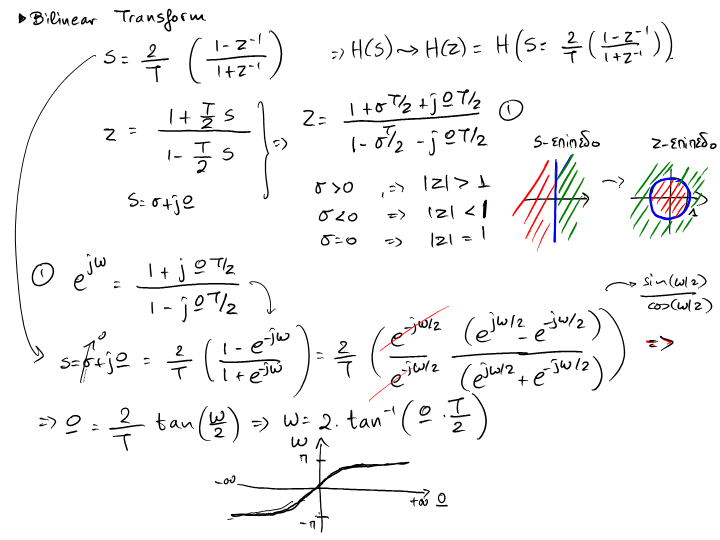 ▸ Bilinear Transform
S = 2/T ( (1 - z^-1) / (1 + z^-1) ) ⇒ H(s) ⇝ H(z) = H( S = 2/T ( (1 - z^-1) / (1 + z^-1) ) )
z = (1 + T/2 S) / (1 - T/2 S) } ⇒ z = (1 + σT/2 + jΩT/2) / (1 - σT/2 - jΩT/2) ①
S = σ + jΩ
σ > 0 , ⇒ |z| > 1
σ < 0 ⇒ |z| < 1
σ = 0 ⇒ |z| = 1
S-επίπεδο → z-επίπεδο
1
① e^jω = (1 + jΩT/2) / (1 - jΩT/2)
S = σ + jΩ = 2/T ( (1 - e^-jω) / (1 + e^-jω) ) = 2/T ( e^-jω/2 / e^-jω/2 (e^jω/2 - e^-jω/2) / (e^jω/2 + e^-jω/2) ) ⇒
0
→ sin(ω/2) / cos(ω/2)
⇒ Ω = 2/T tan(ω/2) ⇒ ω = 2 · tan^-1 ( Ω · T/2 )
ω
π
-∞
+∞ Ω
-π